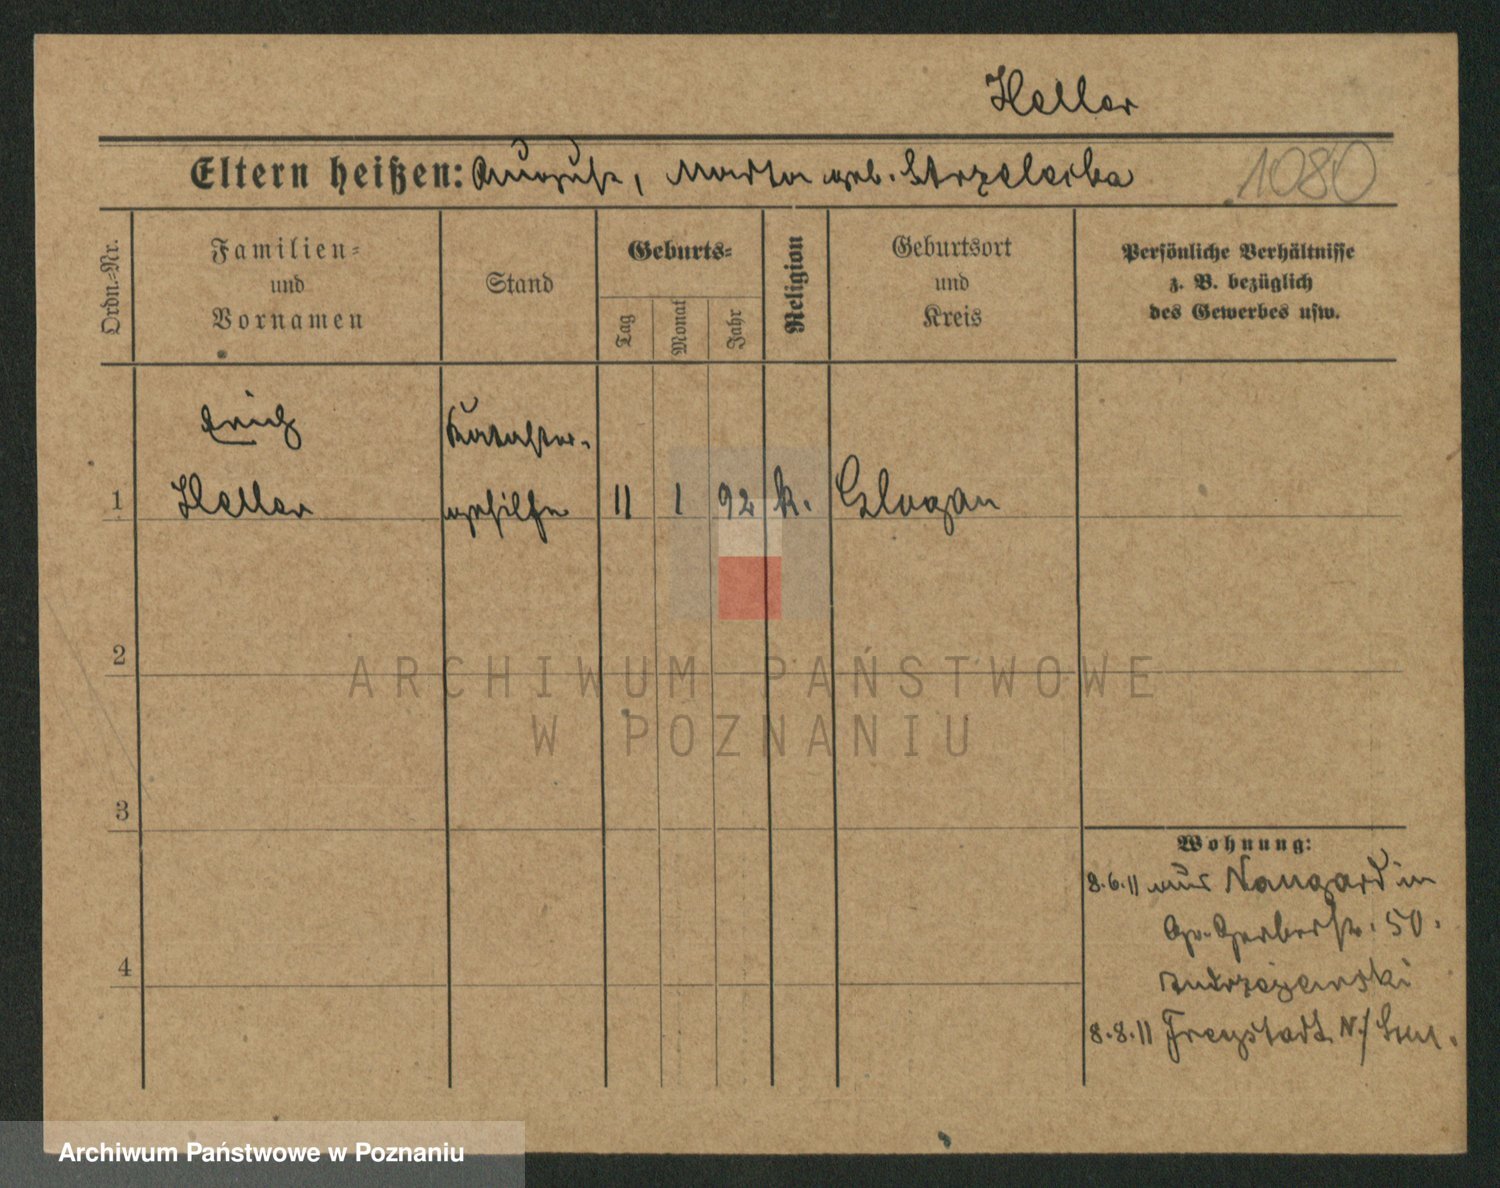 Heller
Eltern heißen: August, Martha geb. Strzelecka
1080
Ordn.-Nr.
Familien-
und
Vornamen
Stand
Geburts-
Tag
Monat
Jahr
Religion
Geburtsort
und
Kreis
Persönliche Verhältnisse
z. B. bezüglich
des Gewerbes usw.
Erich Kataster-
1 Heller gehilfe 11 1 92 k. Glogau
2
3
4
Wohnung:
8.6.11 aus Naugard in
Gr. Gerberstr. 50.
8.8.11 Freystadt N/
ARCHIWUM PAŃSTWOWE
W POZNANIU
Archiwum Państwowe w Poznaniu